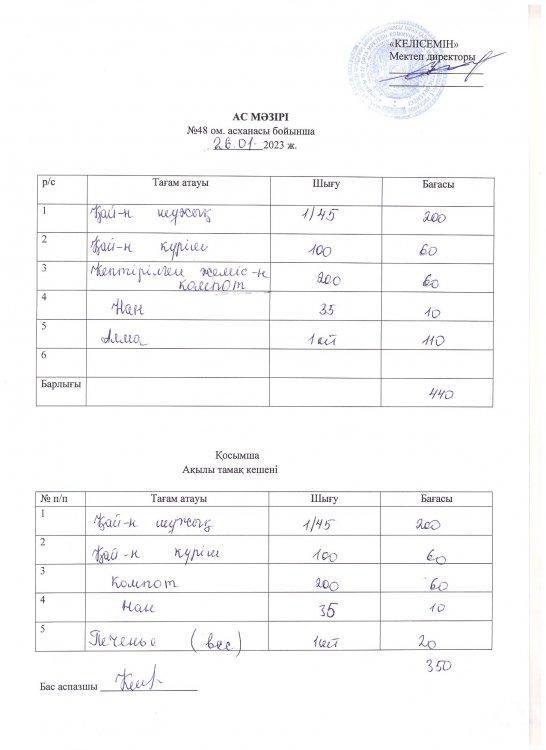 «КЕЛІСЕМІН»
Мектеп директоры
АС МӘЗІРІ
№48 ом. асханасы бойынша
26.01. 2023 ж.
р/с Тағам атауы Шығу Бағасы
1 Қай-н шұжық 1/45 200
2 Қай-н күріш 100 60
3 Кептірілген жеміс-н
компот 200 60
4 Нан 35 10
5 Алма 1шт 110
6
Барлығы 440
Қосымша
Ақылы тамақ кешені
№ п/п Тағам атауы Шығу Бағасы
1 Қай-н шұжық 1/45 200
2 Қай-н күріш 100 60
3 Компот 200 60
4 Нан 35 10
5 Печенье (вес) 1шт 20
350
Бас аспазшы